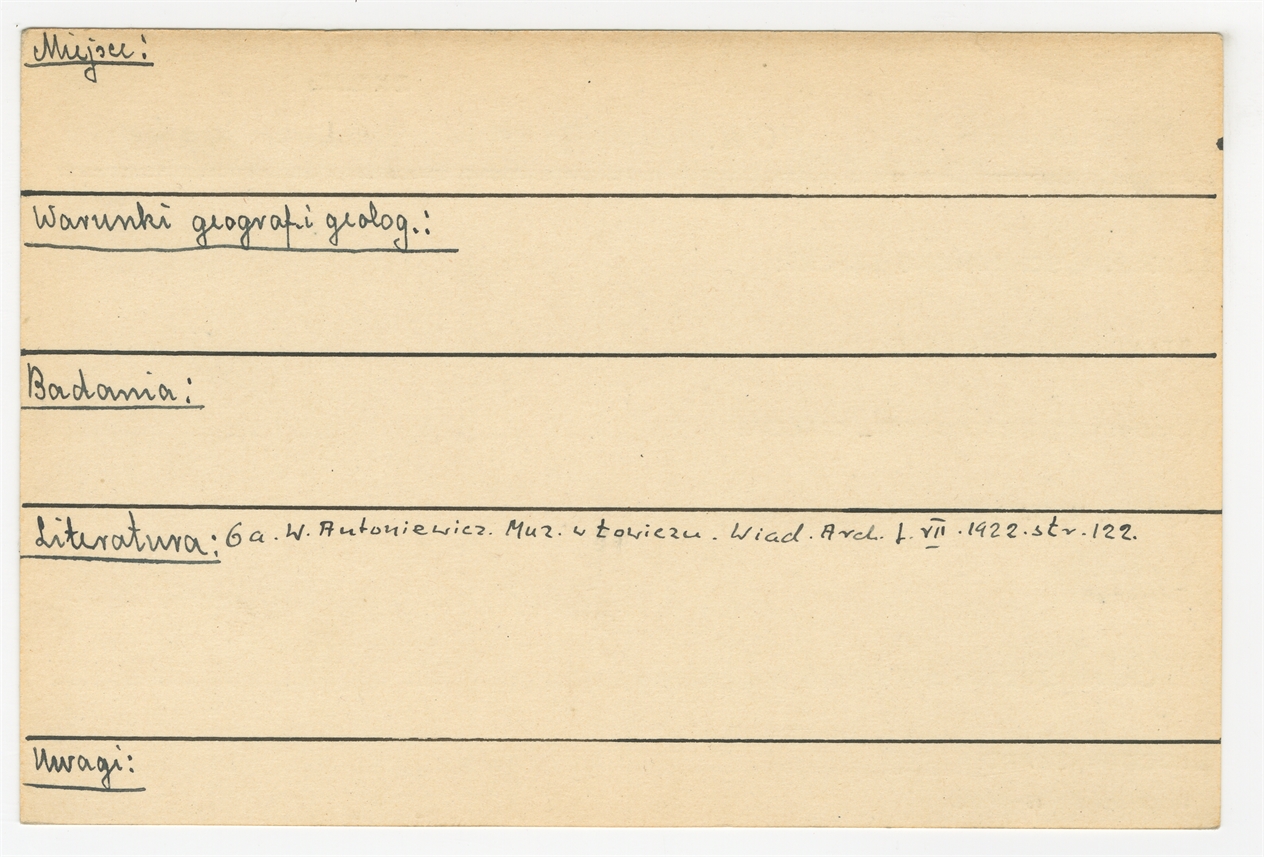 Miejsce:
Warunki geograf. i geolog.:
Badania:
Literatura: 6a. W. Antoniewicz. Muz. w Łowiczu. Wiad. Arch. t. VII. 1922. str. 122.
Uwagi: